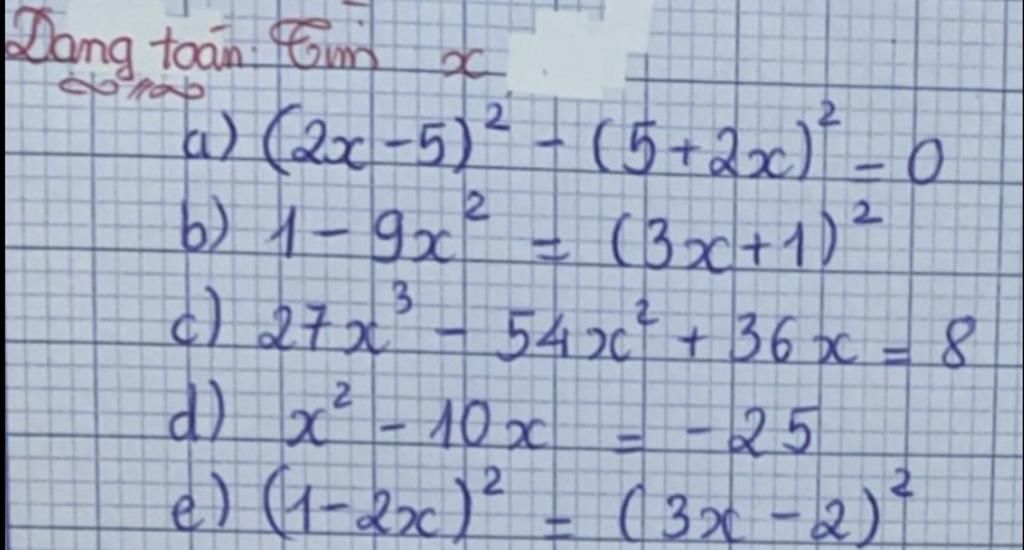 Dạng toán: Tìm x
a) (2x - 5)² - (5 + 2x)² = 0
b) 1 - 9x² = (3x + 1)²
c) 27x³ - 54x² + 36x = 8
d) x² - 10x = -25
e) (1 - 2x)² = (3x - 2)²